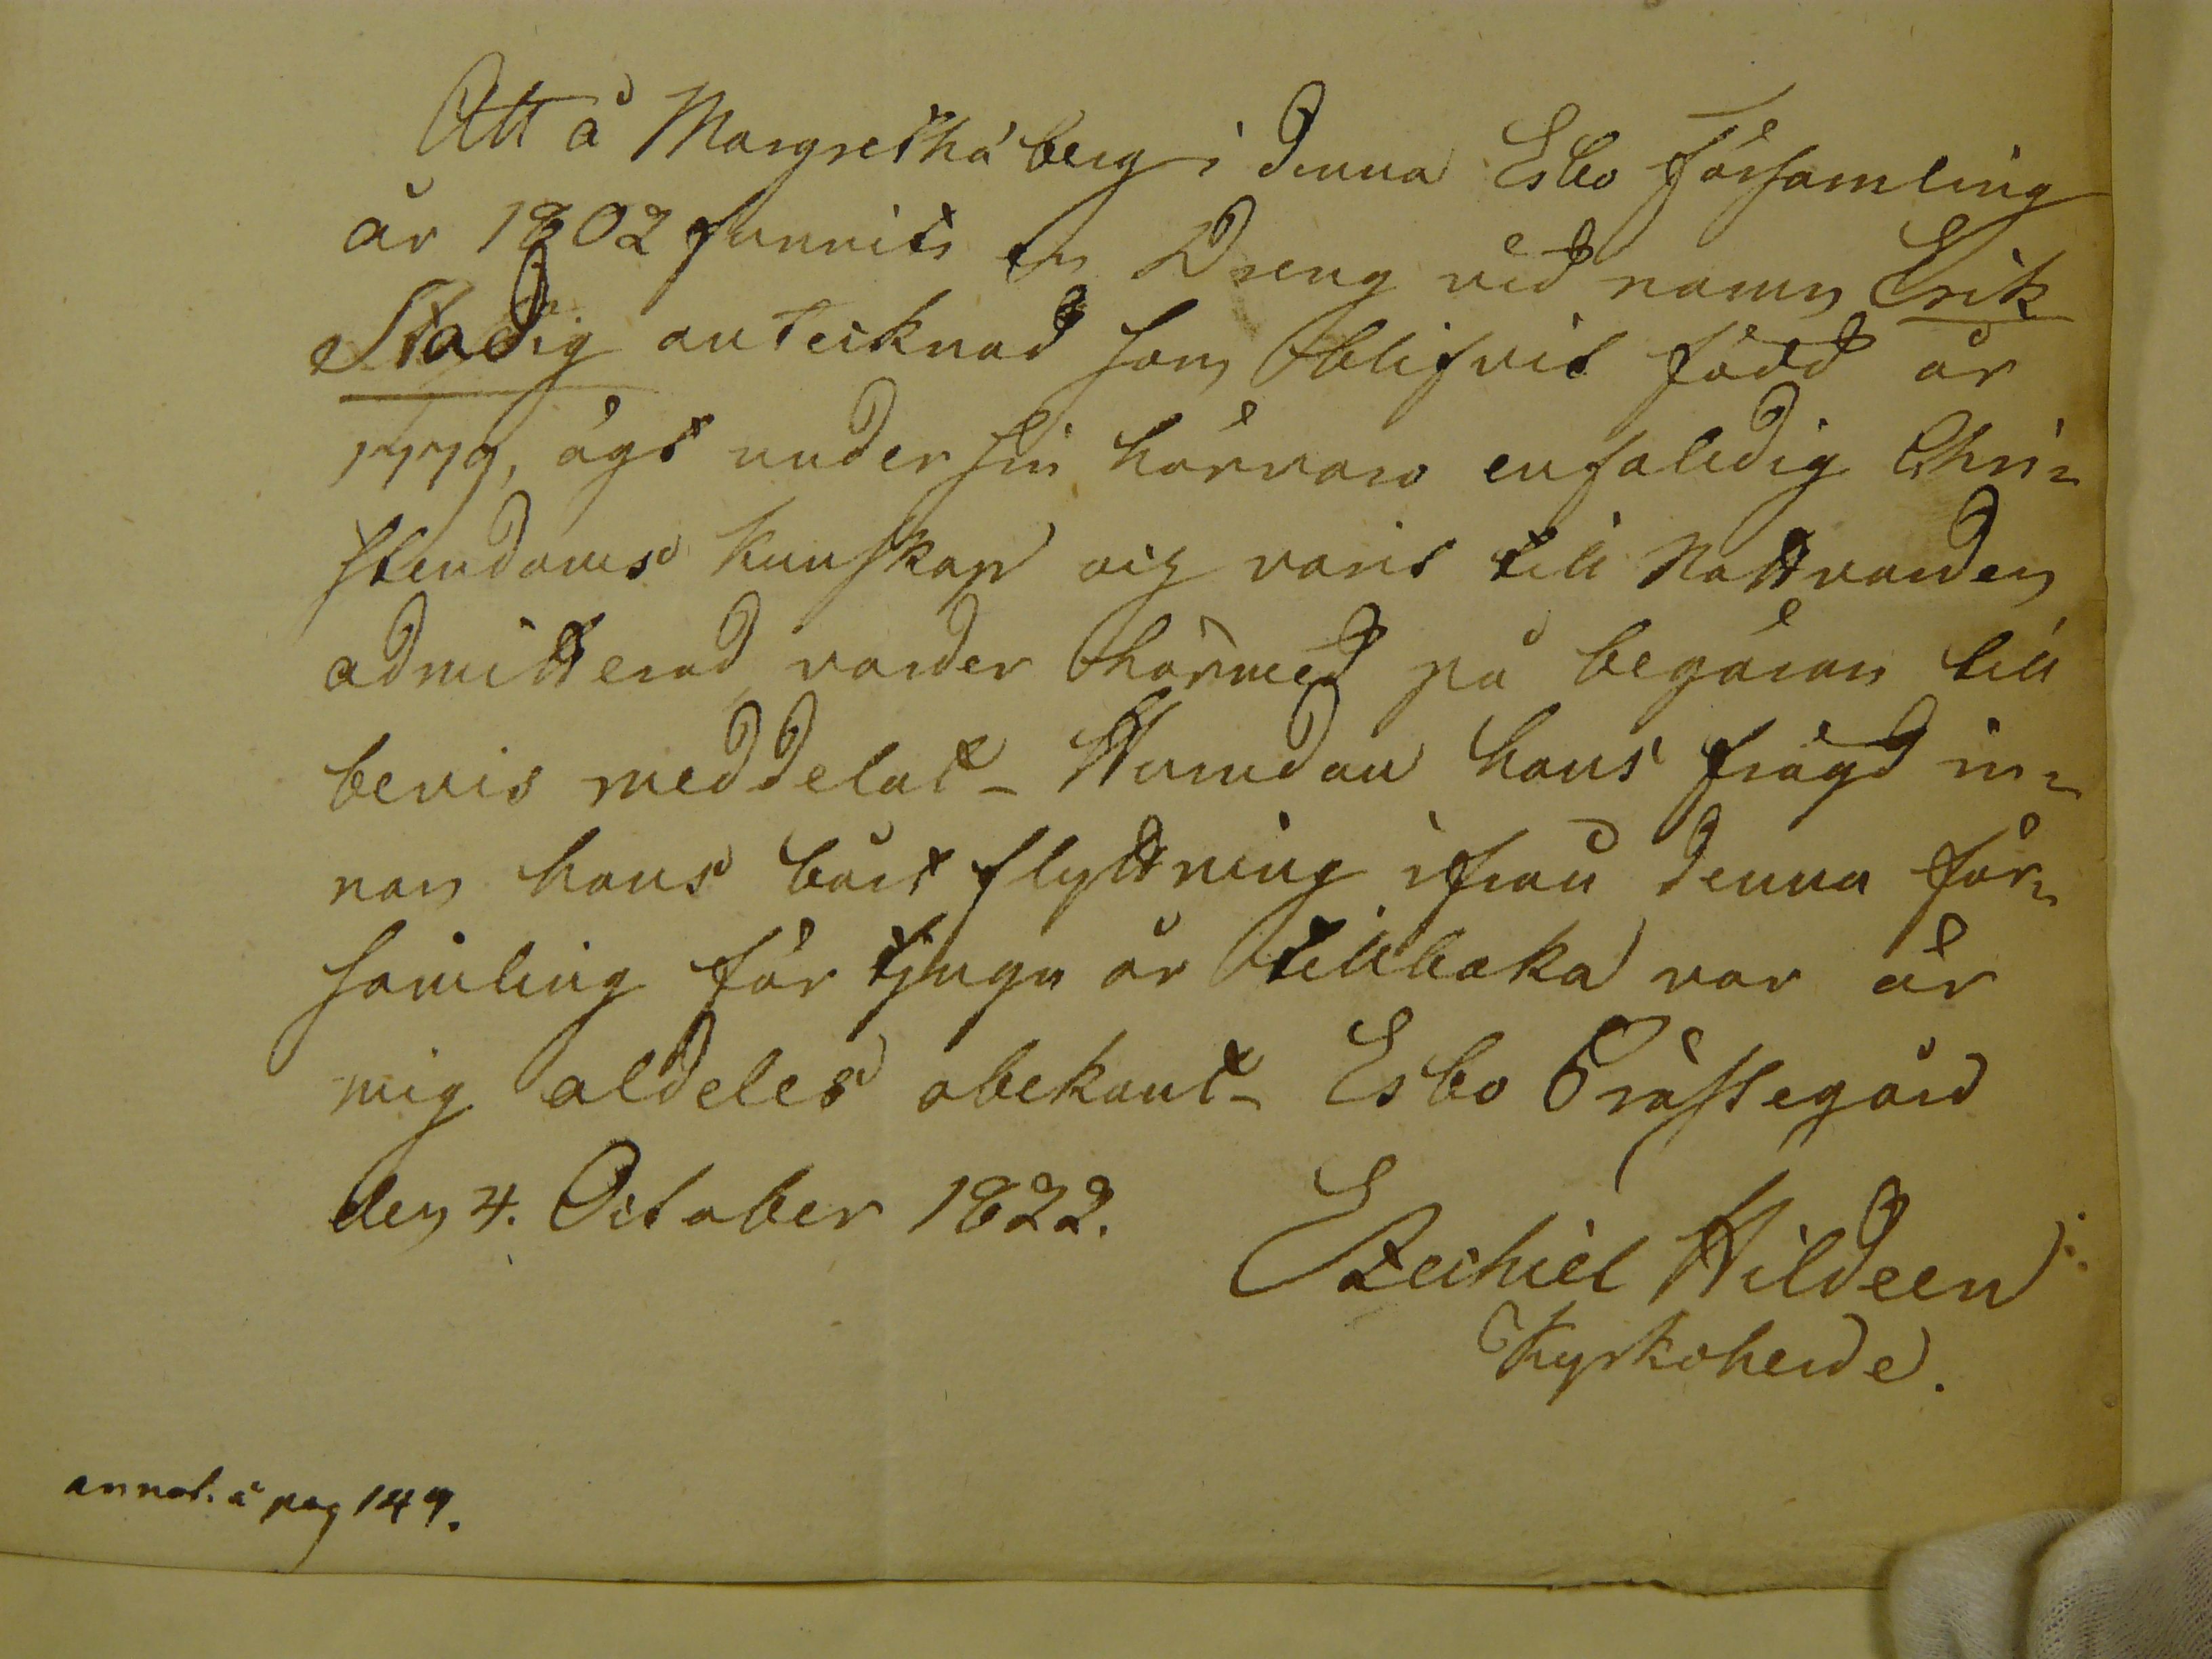 Att å Margrethæberg i denna Esbo Församling
år 1802 funnits en Dreng vid namn Erik
Stadig antecknad som blifvit född år
1779, ägt under sin härvaro enfaldig Chri=
stendoms kunskap ock varit till Nattvarden
admitterad, varder härmed på begäran till
bevis meddelat – Hurudan hans frägd in=
nan hans bårt flyttning ifrån denna för=
samling för tjugu år tillbaka var är
mig aldeles obekant – Esbo Prästegård
den 4. October 1822.
Ezechiel Hildeen
Kyrkoherde.
annot. å pag 149.